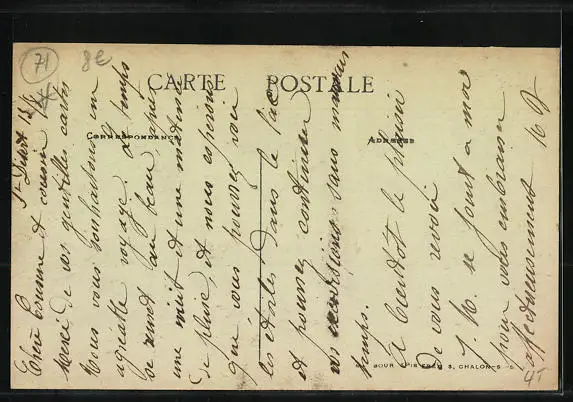 71
8€
CARTE POSTALE
CORRESPONDANCE
ADRESSE
St Dizart 13/
Chère Cousine et cousin
Merci de vos gentilles cartes
Nous vous souhaitons un
agréable voyage, le temps
se remet au beau, après
une nuit et une matinée
de pluie, et nous espérons
que vous pouvez voir
les étoiles dans le lac
et pouvez continuer
vos excursions sans mauvais
temps.
à bientôt le plaisir
de vous revoir
J. M. se joint à moi
pour vous embrasser
affectueusement
BOUR FRÈRES, CHALON-S-S
45